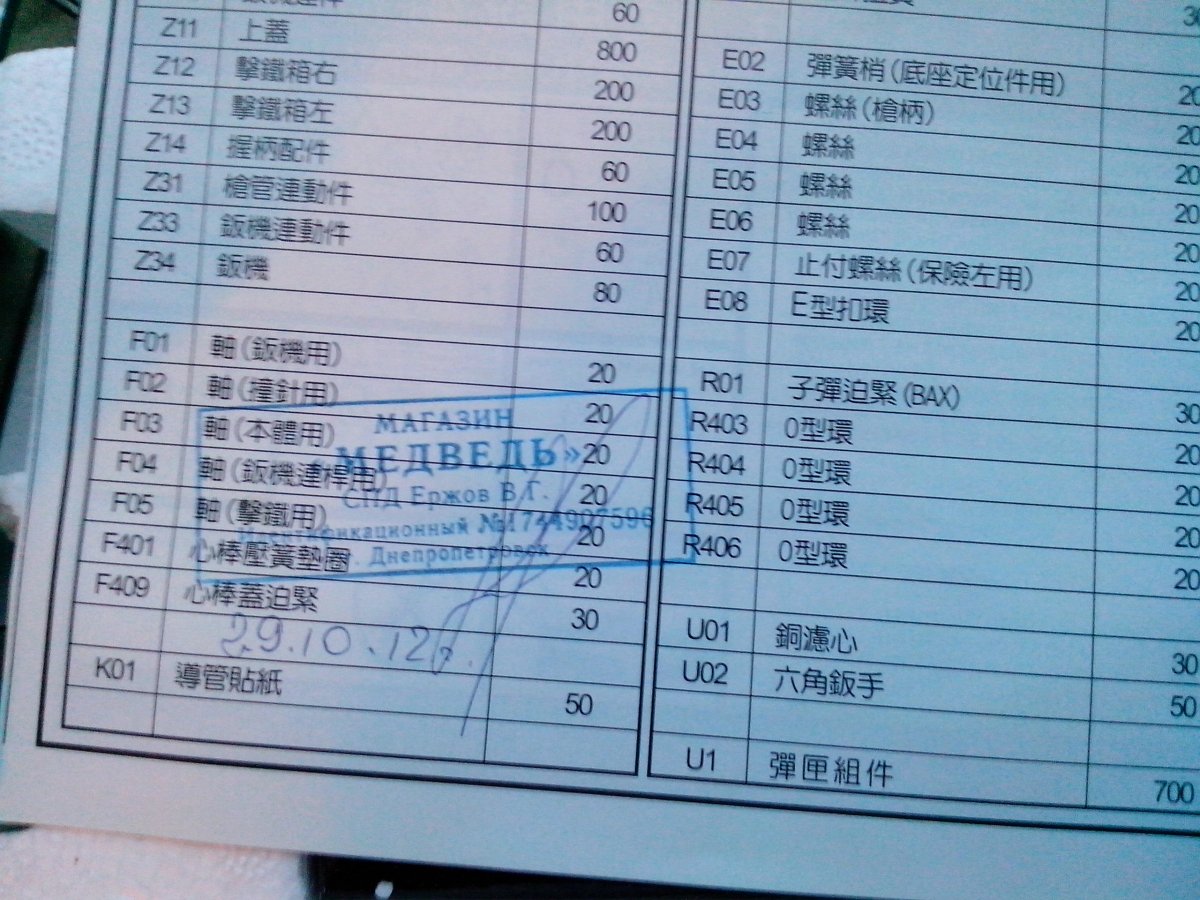 60
Z11 上蓋 800
Z12 擊鐵箱右 200
Z13 擊鐵箱左 200
Z14 握柄配件 60
Z31 槍管連動件 100
Z33 鈑機連動件 60
Z34 鈑機 80
F01 軸(鈑機用) 20
F02 軸(撞針用) 20
F03 軸(本體用) 20
F04 軸(鈑機連桿用) 20
F05 軸(擊鐵用) 20
F401 心棒壓簧墊圈 20
F409 心棒蓋迫緊 30
K01 導管貼紙 50
МАГАЗИН
МЕДВЕДЬ»
СПД Ержов В.Г.
№1744907596
Днепропетровск
29.10.12г.
E02 彈簧梢(底座定位件用) 20
E03 螺絲(槍柄) 20
E04 螺絲 20
E05 螺絲 20
E06 螺絲 20
E07 止付螺絲(保險左用) 20
E08 E型扣環 20
R01 子彈迫緊(BAX) 30
R403 O型環 20
R404 O型環 20
R405 O型環 20
R406 O型環 20
U01 銅濾心 30
U02 六角鈑手 50
U1 彈匣組件 700